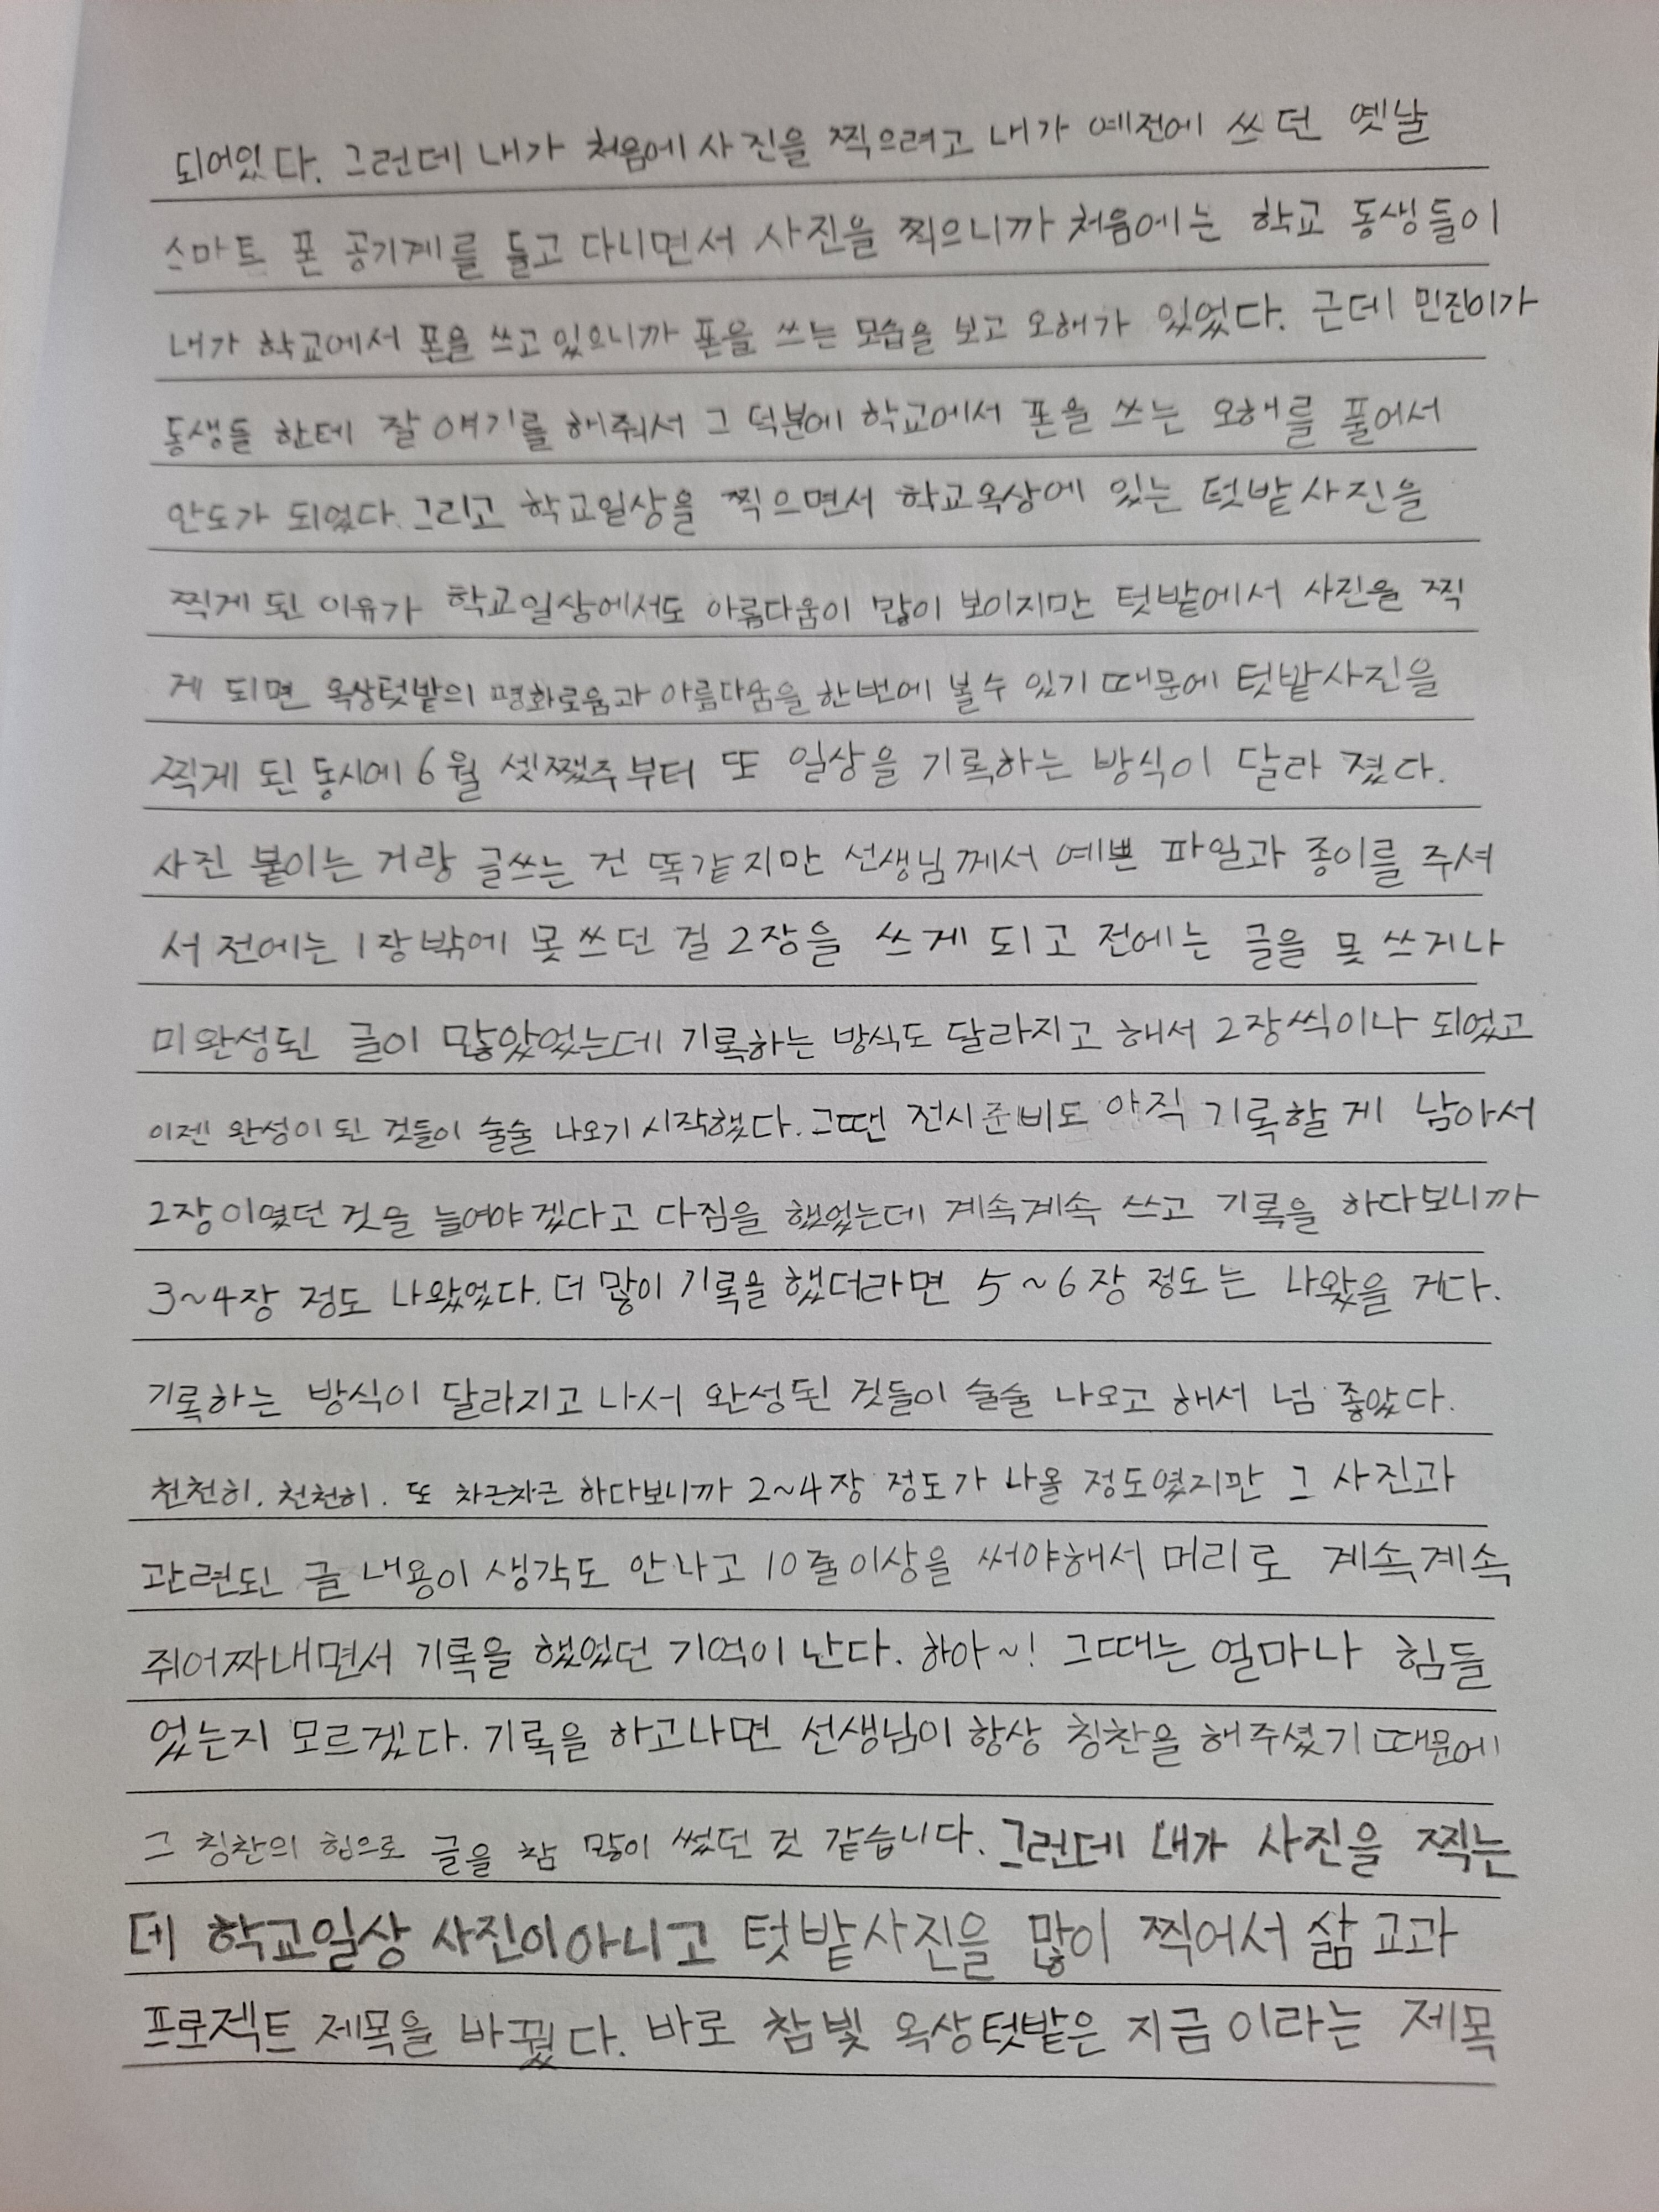 되어있다. 그런데 내가 처음에 사진을 찍으려고 내가 예전에 쓰던 옛날
스마트 폰 공기계를 들고 다니면서 사진을 찍으니까 처음에는 학교 동생들이
내가 학교에서 폰을 쓰고 있으니까 폰을 쓰는 모습을 보고 오해가 있었다. 근데 민진이가
동생들 한테 잘 얘기를 해줘서 그 덕분에 학교에서 폰을 쓰는 오해를 풀어서
안도가 되었다. 그리고 학교일상을 찍으면서 학교옥상에 있는 텃밭사진을
찍게 된 이유가 학교일상에서도 아름다움이 많이 보이지만 텃밭에서 사진을 찍
게 되면 옥상텃밭의 평화로움과 아름다움을 한번에 볼수 있기 때문에 텃밭사진을
찍게 된 동시에 6월 셋쨋주부터 또 일상을 기록하는 방식이 달라 졌다.
사진 붙이는 거랑 글쓰는 건 똑같지만 선생님께서 예쁜 파일과 종이를 주셔
서 전에는 1장밖에 못 쓰던 걸 2장을 쓰게 되고 전에는 글을 못 쓰거나
미완성된 글이 많았었는데 기록하는 방식도 달라지고 해서 2장씩이나 되었고
이젠 완성이 된 것들이 술술 나오기 시작했다. 그땐 전시준비도 아직 기록할게 남아서
2장이였던 것을 늘여야겠다고 다짐을 했었는데 계속계속 쓰고 기록을 하다보니까
3~4장 정도 나왔었다. 더 많이 기록을 했더라면 5~6장 정도는 나왔을 게다.
기록하는 방식이 달라지고 나서 완성된 것들이 술술 나오고 해서 넘 좋았다.
천천히. 천천히. 또 차근차근 하다보니까 2~4장 정도가 나올 정도였지만 그 사진과
관련된 글 내용이 생각도 안나고 10줄이상을 써야해서 머리로 계속계속
쥐어짜내면서 기록을 했었던 기억이 난다. 하아~! 그때는 얼마나 힘들
었는지 모르겠다. 기록을 하고나면 선생님이 항상 칭찬을 해주셨기 때문에
그 칭찬의 힘으로 글을 참 많이 썼던 것 같습니다. 그런데 내가 사진을 찍는
데 학교일상 사진이아니고 텃밭사진을 많이 찍어서 삶 교과
프로젝트 제목을 바꿨다. 바로 참빛 옥상텃밭은 지금 이라는 제목